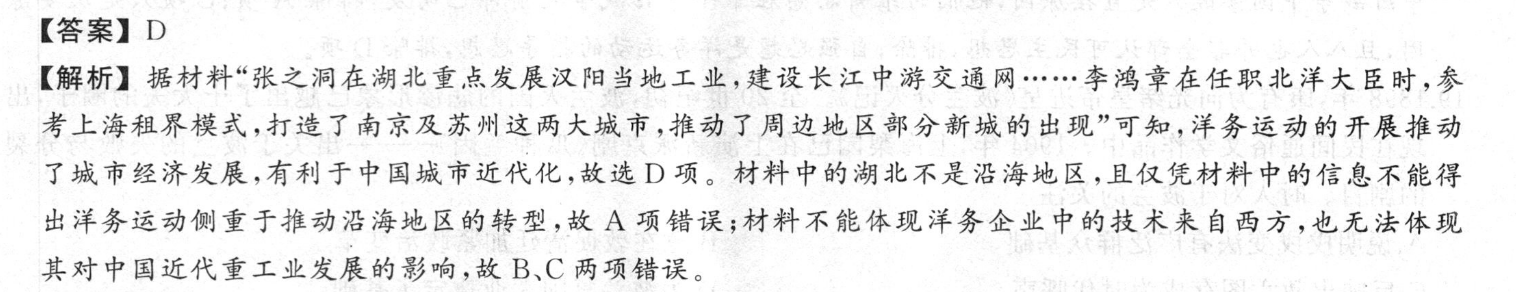 【答案】D
【解析】据材料“张之洞在湖北重点发展汉阳当地工业,建设长江中游交通网……李鸿章在任职北洋大臣时,参
考上海租界模式,打造了南京及苏州这两大城市,推动了周边地区部分新城的出现”可知,洋务运动的开展推动
了城市经济发展,有利于中国城市近代化,故选D项。材料中的湖北不是沿海地区,且仅凭材料中的信息不能得
出洋务运动侧重于推动沿海地区的转型,故 A 项错误;材料不能体现洋务企业中的技术来自西方,也无法体现
其对中国近代重工业发展的影响,故 B、C 两项错误。